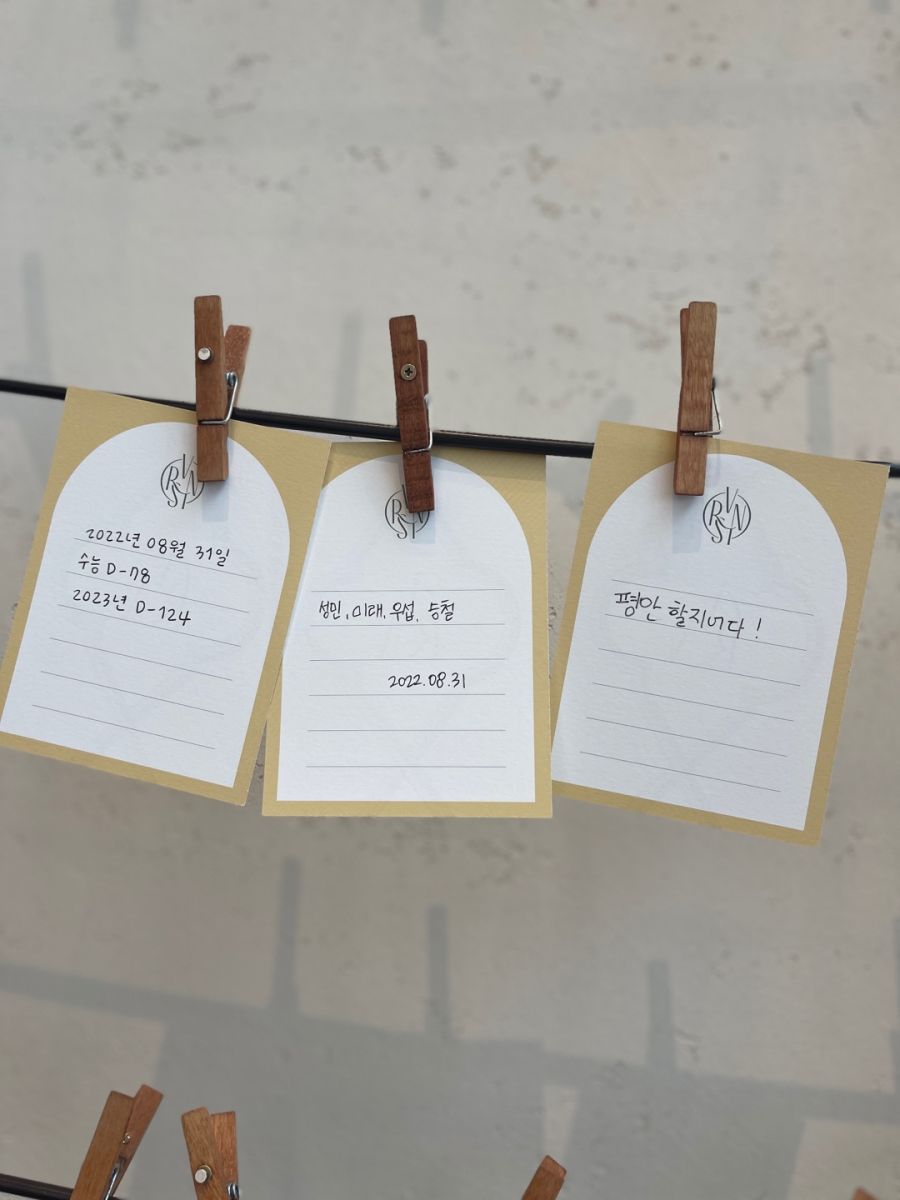 2022년 08월 31일
수능 D-78
2023년 D-124
성민, 미래, 우섭, 승철
2022.08.31
평안 할지어다!